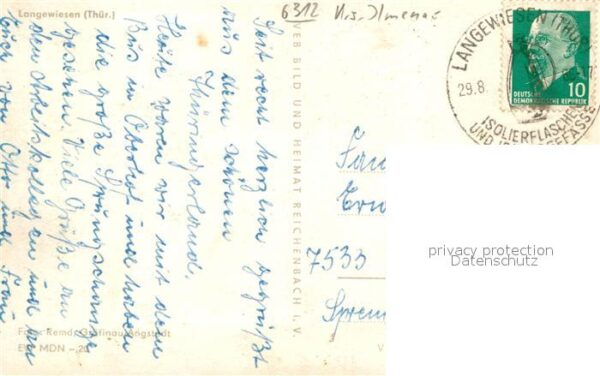 Langewiesen (Thür.)
6312 Krs. Ilmenau
Seit recht herzlich gegrüßt
aus dem schönen
Thüringerland.
Heute waren wir mit dem
Bus in Oberhof und haben
die große Sprungschanze
gesehen. Viele Grüße an
den Arbeitskollegen und an
Euch von Otto und Frau
VEB BILD UND HEIMAT REICHENBACH I. V.
Gräfinau-Angstedt
EVP MDN -,20
LANGEWIESEN (THÜR)
29.8.
ISOLIERFLASCHEN
UND
10
DEUTSCHE
DEMOKRATISCHE REPUBLIK
7533
privacy protection
Datenschutz